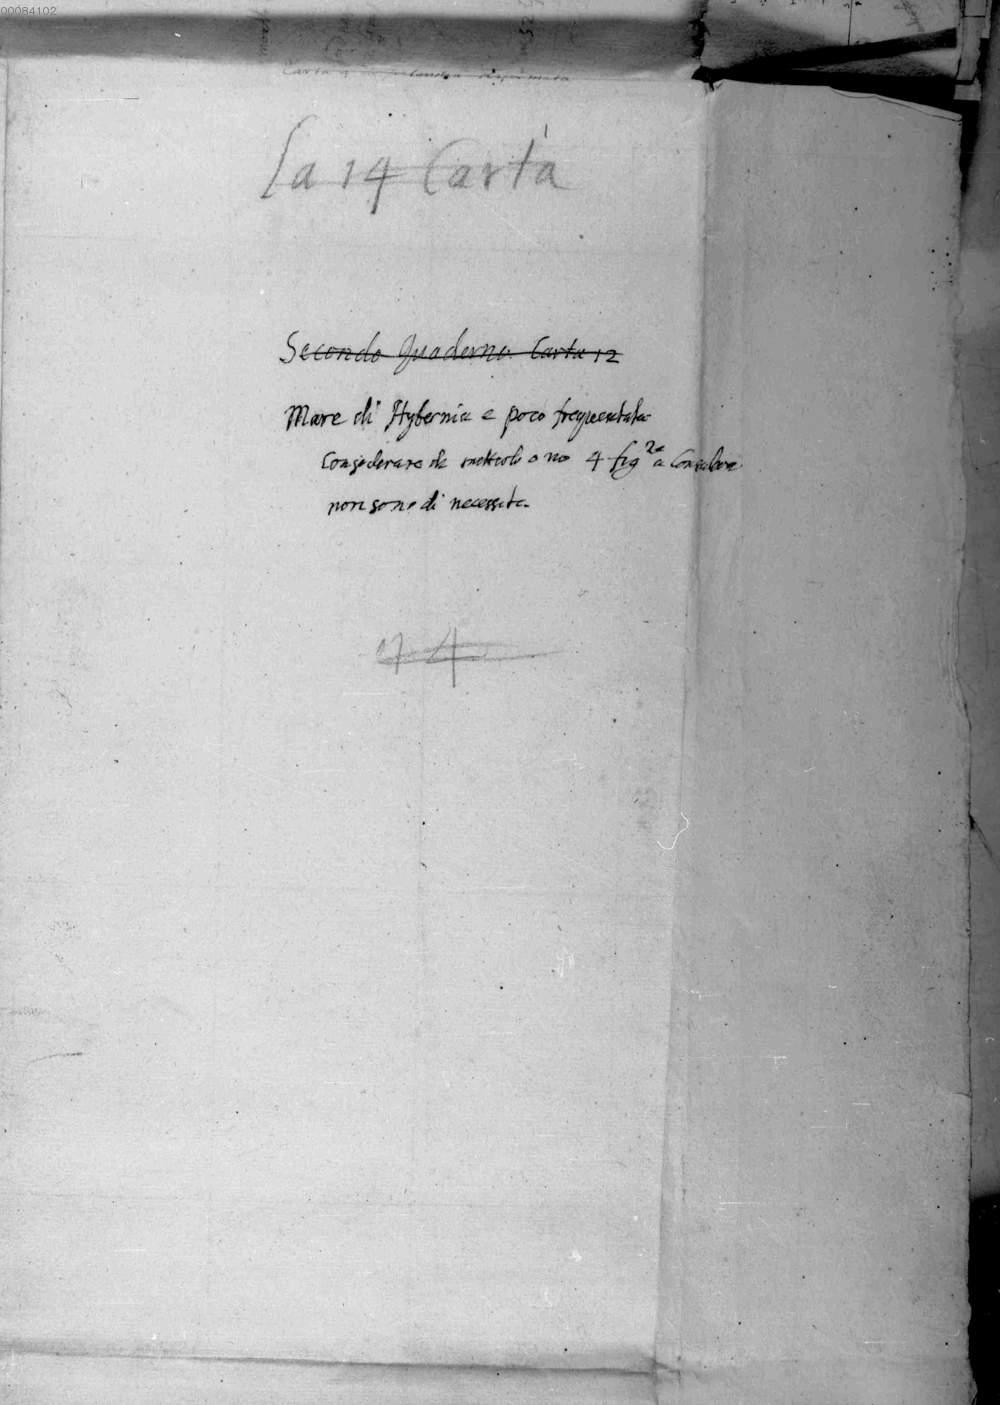 00084102
Carta
La 14 Carta
Secondo Quaderno Carta 12
Mare di Hybernia e poco frequentata
Considerare de metterla o no 4 fig 2a a
non sono di necessita.
17 4